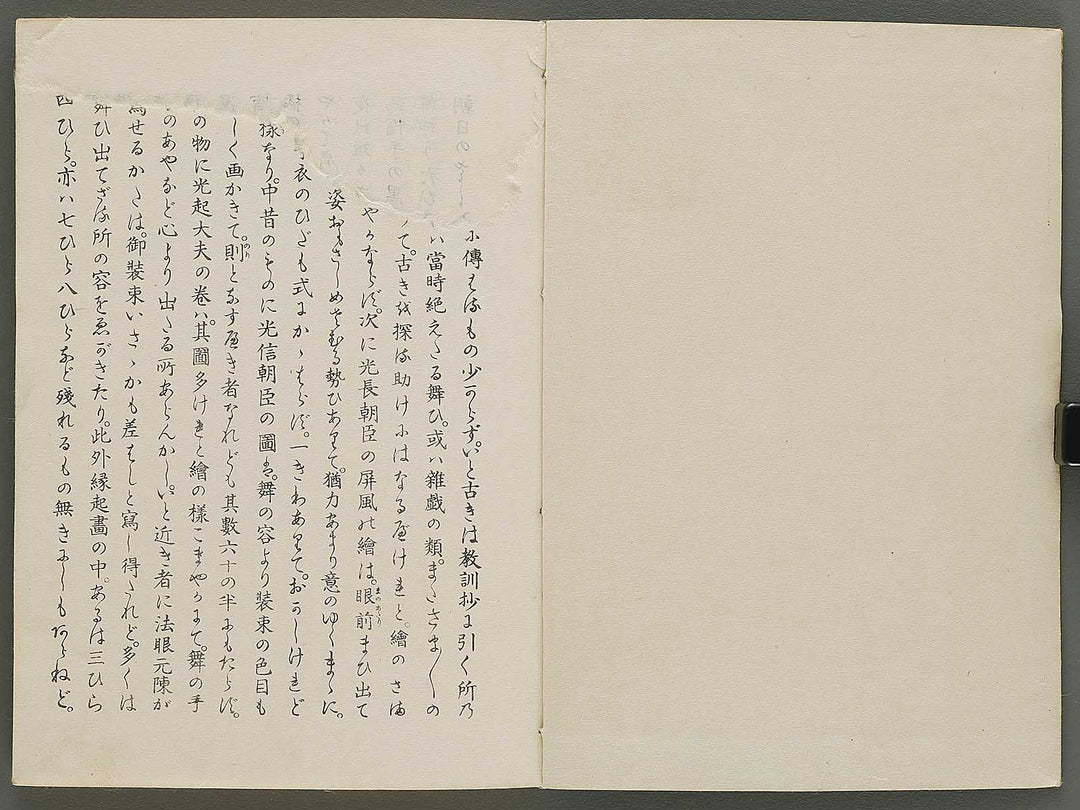 に傳はるもの少からず。いと古きは教訓抄に引く所乃
ハ當時絶えたる舞ひ。或ハ雜戯の類。またさま〲の
て。古きを探る助けにはなるべけれど。繪のさま
やかならず。次に光長朝臣の屏風の繪は。眼前まひ出て
姿おもさしめでむる勢ひありて。猶力あまり意のゆくまゝに。
衣のひだも式にかゝはらず。一きわありて。おかしけれど
様なり。中昔のものに光信朝臣の圖は。舞の容より装束の色目も
しく画かきて。則となすべき者なれども其數六十の半にもたらず。
の物に光起大夫の巻ハ。其圖多けれど繪の様こまやかにて。舞の手
のあやなど心より出たる所あらんかし。いと近き者に法眼元陳が
寫せるかたは。御装束いさゝかも差はしと寫し得たれど。多くは
舞ひ出てざる所の容をゑがきたり。此外縁起畫の中。あるは三ひら
四ひら。亦ハ七ひら八ひらなど残れるもの無きにしもあらねど。